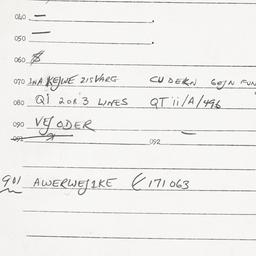 040 —
050 —
060 $
070 INA KEJWE 215VARG CUDEKN 60JN FUN
080 QI 2 OR 3 LINES QT ii/A/496
090 VEJ ODER —
091 092
901 AWERWEJ1KE 171063